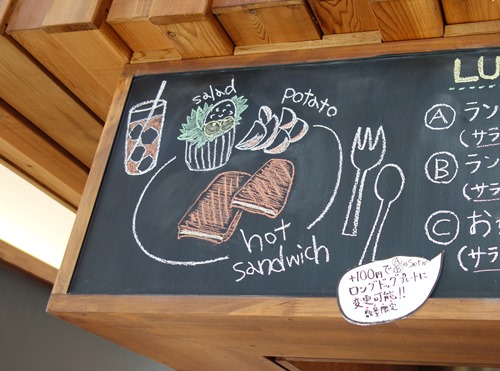 salad
potato
hot
sandwich
LU
Ⓐ ラン
(サラ
Ⓑ ラン
(サラ
Ⓒ お
(サラ
+100円で ⒶⒷ Setの
ロングドッグプレートに
変更可能!!
数量限定